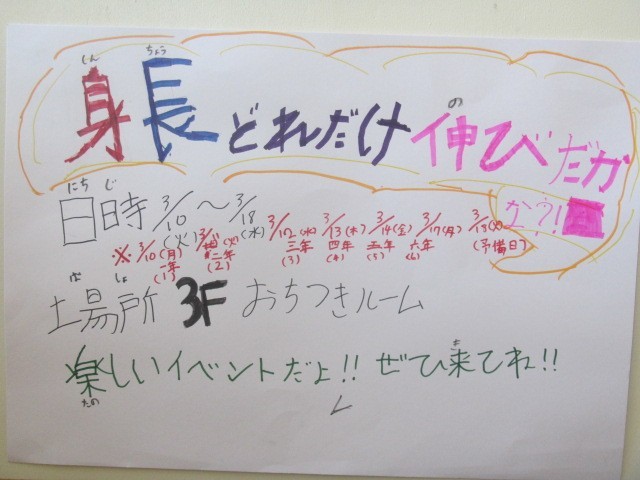 身長どれだけ伸びだか
しん ちょう の
な?!
にち じ
日時 3/10(火)～3/18(水)
※3/10(月) 3/11(火) 3/12(水) 3/13(木) 3/14(金) 3/17(月) 3/18(火)
一年 二年 三年 四年 五年 六年 (予備日)
(1) (2) (3) (4) (5) (6)
ば しょ
場所 3F おちつきルーム
楽しいイベントだよ!! ぜひ来てね!!
たの き